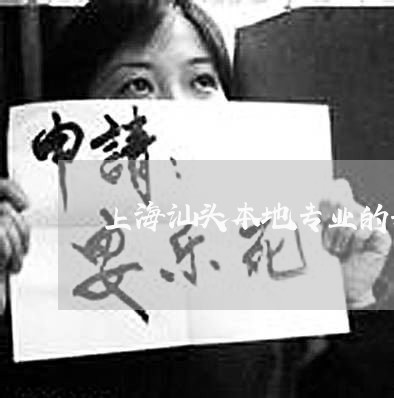 申請：
上海汕头本地专业的
安乐死